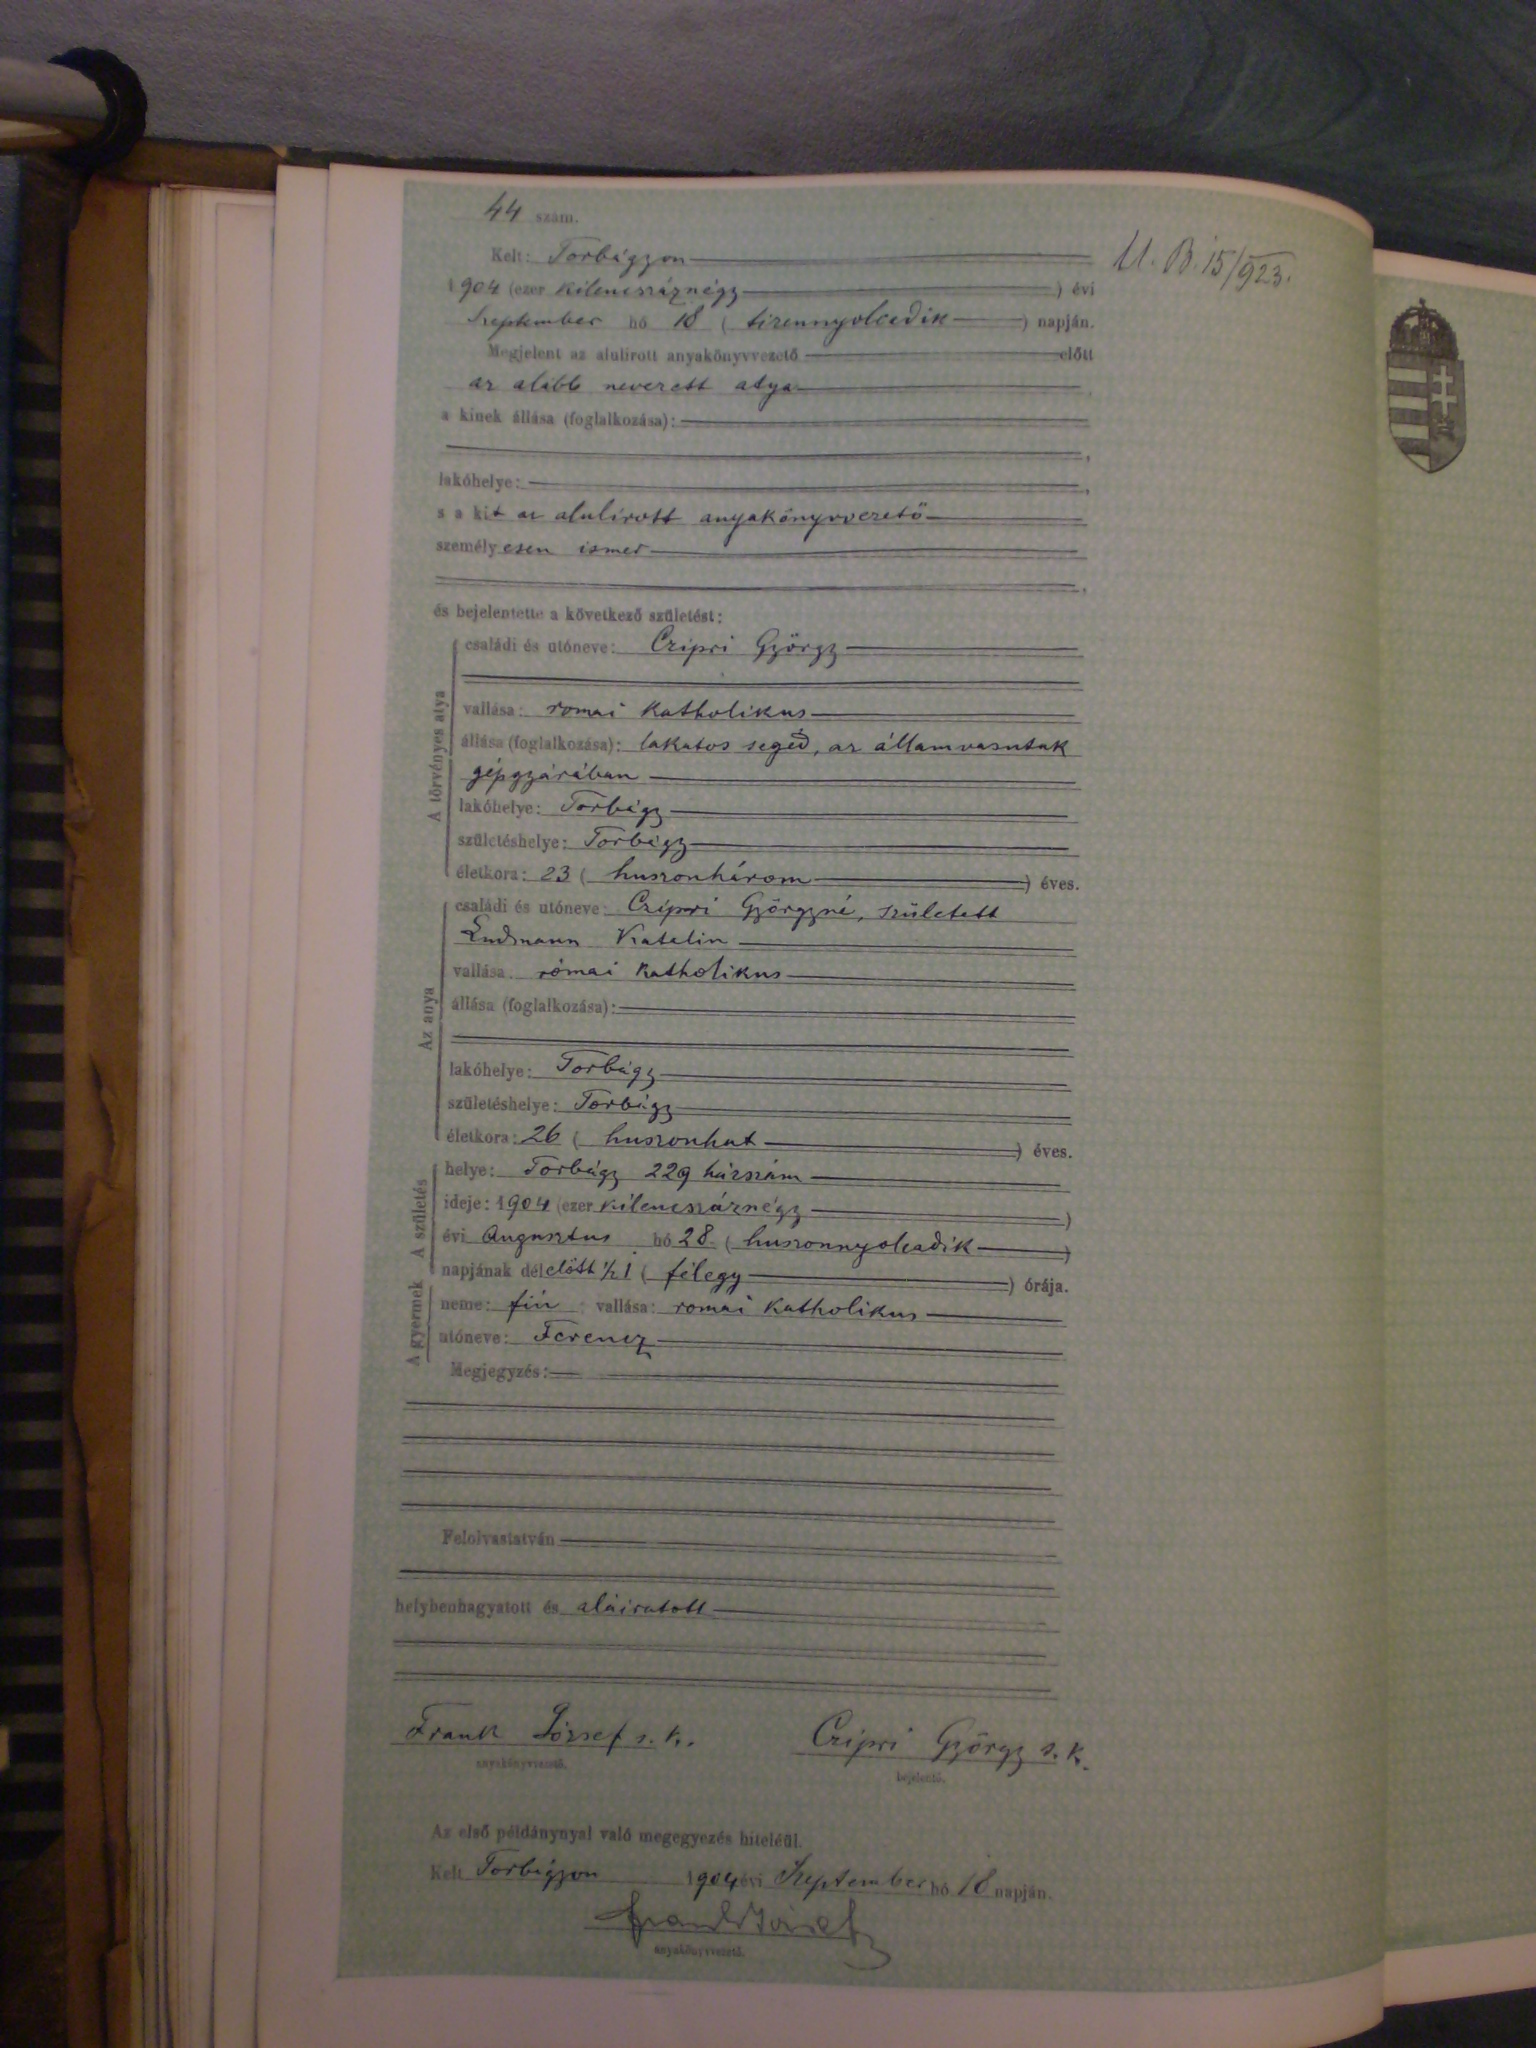 44 szám.
U. B. 15/923.
Kelt: Torbágyon
1904 (ezer kilenczáznégy) évi
Szeptember hó 18 (tizennyolcadik) napján.
Megjelent az alulírott anyakönyvvezető előtt
az alább nevezett atya
a kinek állása (foglalkozása):
lakóhelye:
s a kit az alulírott anyakönyvvezető
személyesen ismer
és bejelentette a következő születést:
A törvényes atya
családi és utóneve: Czipri György
vallása: romai katholikus
állása (foglalkozása): lakatos segéd, az államvasutak
gépgyárában
lakóhelye: Torbágy
születéshelye: Torbágy
életkora: 23 (huszonhárom) éves.
Az anya
családi és utóneve: Czipri Györgyné, született
Katalin
vallása: római katholikus
állása (foglalkozása):
lakóhelye: Torbágy
születéshelye: Torbágy
életkora: 26 (huszonhat) éves.
A születés
helye: Torbágy 229 házszám
ideje: 1904 (ezer kilenczáznégy)
évi Augusztus hó 28 (huszonnyolcadik)
napjának délelőtt 1/2 1 (félegy) órája.
A gyermek
neme: fiú; vallása: romai katholikus
utóneve: Ferencz
Megjegyzés:
Felolvastatván
helybenhagyatott és aláiratott
Frank József s. k.
anyakönyvvezető.
Czipri György s. k.
bejelentő.
Az első példánynyal való megegyezés hiteléül.
Kelt Torbágyon 1904 évi Szeptember hó 18 napján.
Frank József
anyakönyvvezető.